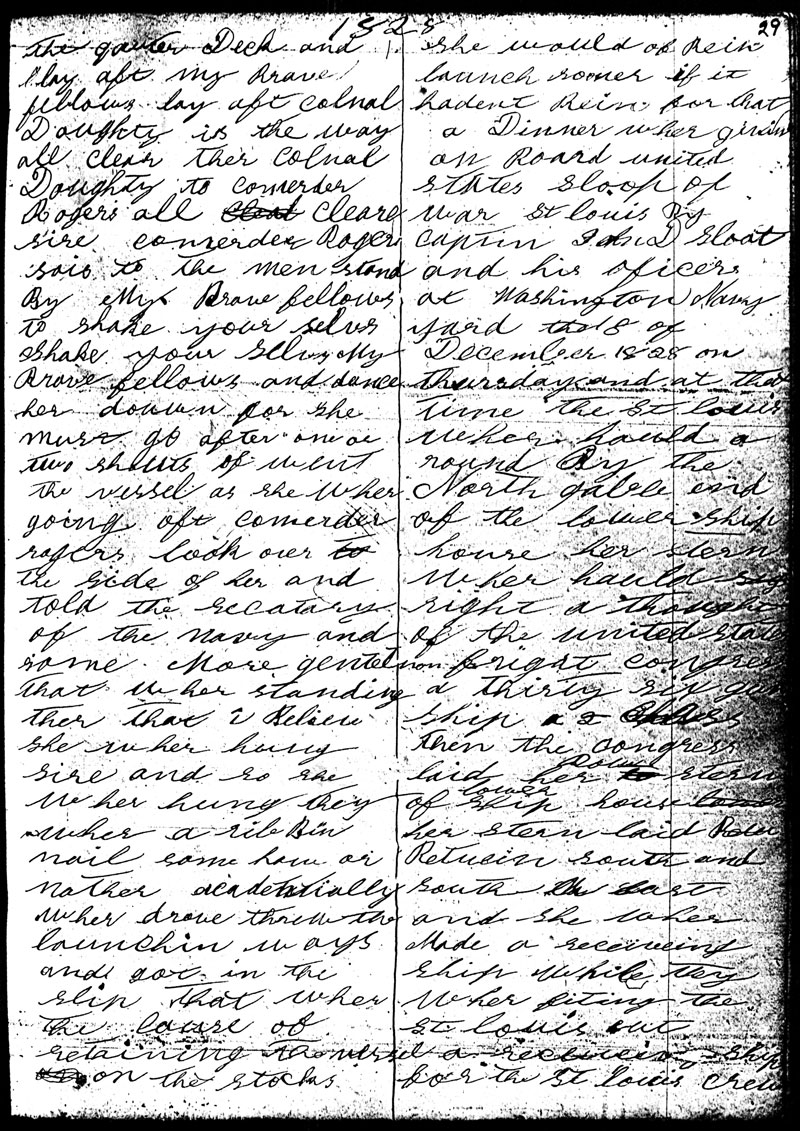 1828
29
the qauter Deck and
lay aft my Brave
fellows lay aft Colnal
Doughty is the way
all clear ther Colnal
Doughty to comerder
Rogers all cleare
sire comerder Rogers
said to the men stand
By My Brave fellows
to shake your selvs
Shake your Sellvs My
Brave fellows and dance
her dowwn for she
must go after one or
two shouts of went
the vessel as she wher
going oft comerder
rogers look over to
the side of her and
told the secatary
of the navy and
some More gentelmon
that wher standing
ther that I Beliew
she wher hung
sire and so she
wher hung they
wher a rib Bin
nail some how or
nather acadentially
wher drove threw the
launchin ways
and got in the
slip that wher
the cause of
retaining the vessel
on the stocks
She would of Bein
launch sooner if it
hadent Bein for that
a Dinner wher givin
on Board united
states sloop of
war St louis By
Captin John D Sloat
and his oficers
at Washington Navy
yard the 18 of
December 1828 on
thursday and at that
time the St louis
wher hauld a
round By the
North gable end
of the lower ship
house her stern
wher hauld
right a thought
of the united states
fright congress
a thirty six gun
ship
then the congress
laid her stern
of lower ship house
her stern laid
Betwein south and
south East
and she wher
Made a receiveing
ship while they
wher fiting the
St louis out
a receivin ship
for the St louis crew